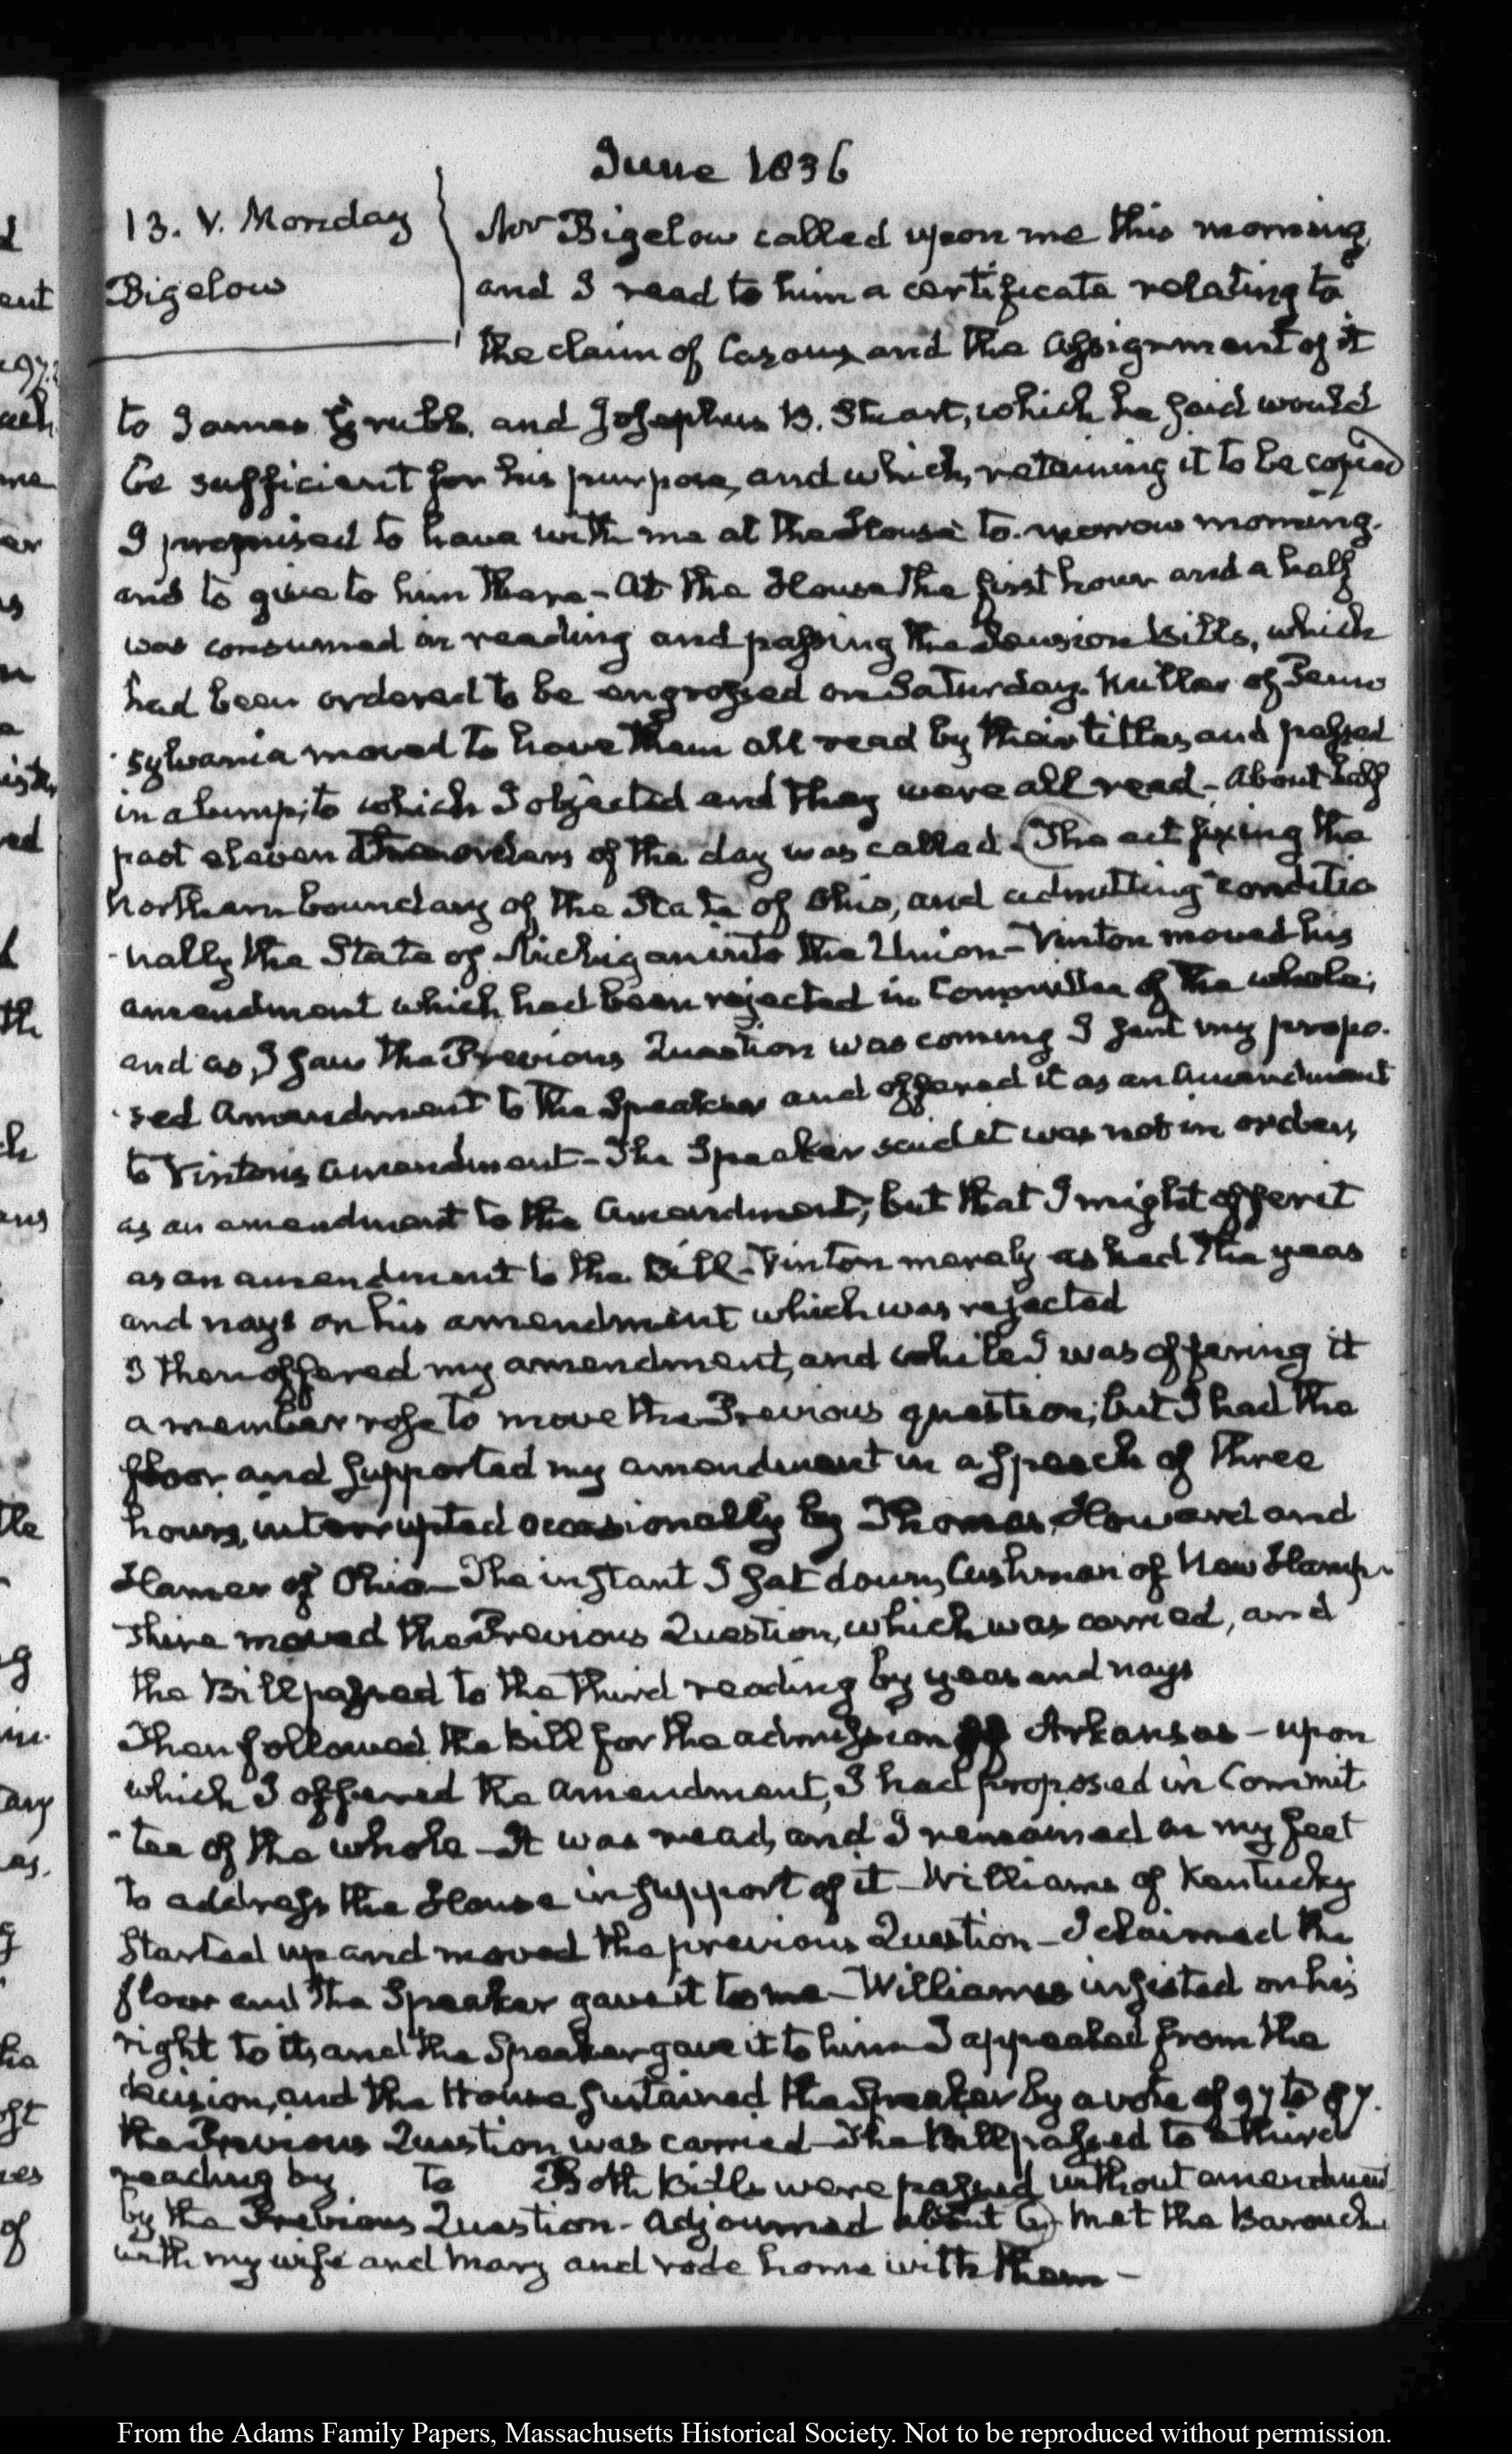 June 1836
13. V. Monday
Bigelow
Mr Bigelow called upon me this morning,
and I read to him a certificate relating to
the claim of Cazoux and the Assignment of it
to James Grubb, and Josephus B. Stuart, which he said would
be sufficient for his purpose, and which, retaining it to be copied
I promised to have with me at the House to-morrow morning.
and to give to him there – At the House the first hour and a half
was consumed in reading and passing the Pension Bills, which
had been ordered to be engrossed on Saturday. Miller of Penn
sylvania moved to have them all read by their titles, and passed
in a lump; to which I objected and they were all read – About half
past eleven the orders of the day was called – The act fixing the
Northern boundary of the State of Ohio, and admitting conditio
nally the State of Michigan into the Union – Vinton moved his
amendment which had been rejected in Committee of the whole;
and as, I saw the Previous Question was coming I sent my propo-
sed Amendment to the Speaker and offered it as an Amendment
to Vinton's amendment – The Speaker said it was not in order,
as an amendment to the Amendment; but that I might offer it
as an amendment to the Bill – Vinton merely asked the yeas
and nays on his amendment which was rejected
I then offered my amendment, and while I was offering it
a member rose to move the Previous question; but I had the
floor and supported my amendment in a speech of three
hours, interrupted occasionally by Thomas, Howard and
Hamer of Ohio – The instant I sat down, Cushman of New Hamp-
shire moved the Previous Question, which was carried, and
the Bill passed to the third reading by yeas and nays
Then followed the Bill for the admission of Arkansas – upon
which I offered the Amendment, I had proposed in Commit
tee of the whole – It was read, and I remained on my feet
to address the House in support of it – Williams of Kentucky
started up and moved the previous Question – I claimed the
floor and the Speaker gave it to me – Williams insisted on his
right to it, and the Speaker gave it to him – I appealed from the
decision, and the House sustained the Speaker by a vote of 97 to 87.
the Previous Question was carried – The Bill passed to a third
reading by to Both Bills were passed without amendment
by the Previous Question – Adjourned about 6 – Met the Barouche
with my wife and Mary and rode home with them –
From the Adams Family Papers, Massachusetts Historical Society. Not to be reproduced without permission.